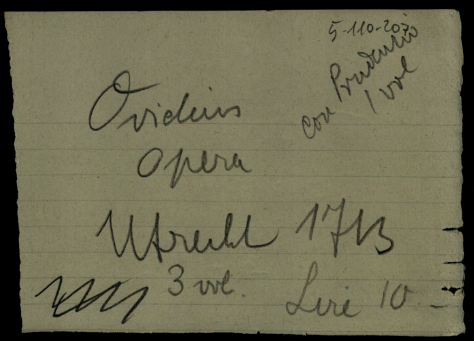 5-110-203
con Prudenzio
1 vol
Ovidius
opera
Utrecht 1713
3 vol. Lire 10 -